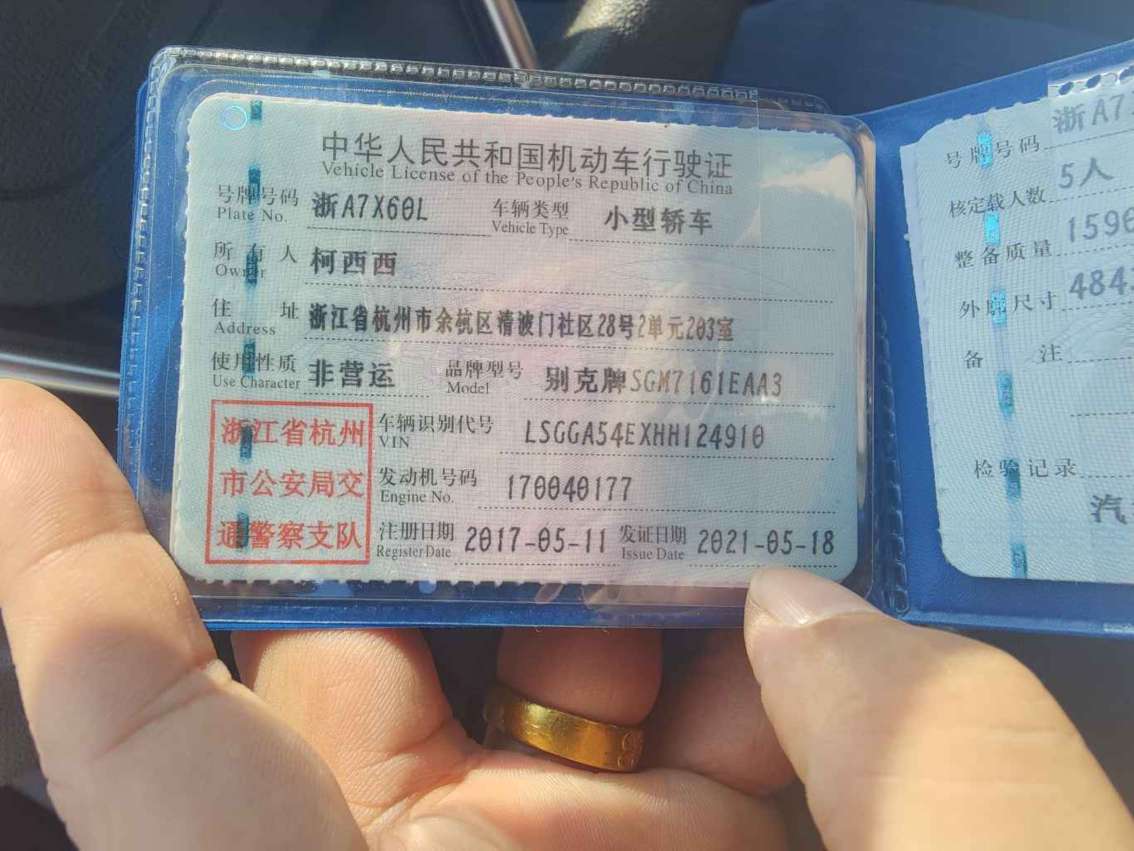 中华人民共和国机动车行驶证
Vehicle License of the People's Republic of China
号牌号码 浙A7X60L 车辆类型 小型轿车
Plate No. Vehicle Type
所有人 柯西西
Owner
住址 浙江省杭州市余杭区清波门社区28号2单元203室
Address
使用性质 非营运 品牌型号 别克牌SGM7161EAA3
Use Character Model
浙江省杭州
市公安局交
通警察支队
车辆识别代号 LSGGA54EXHH124910
VIN
发动机号码 170040177
Engine No.
注册日期 2017-05-11 发证日期 2021-05-18
Register Date Issue Date
号牌号码 浙A7
核定载人数 5人
整备质量 159
外廓尺寸 484
备注
检验记录
汽